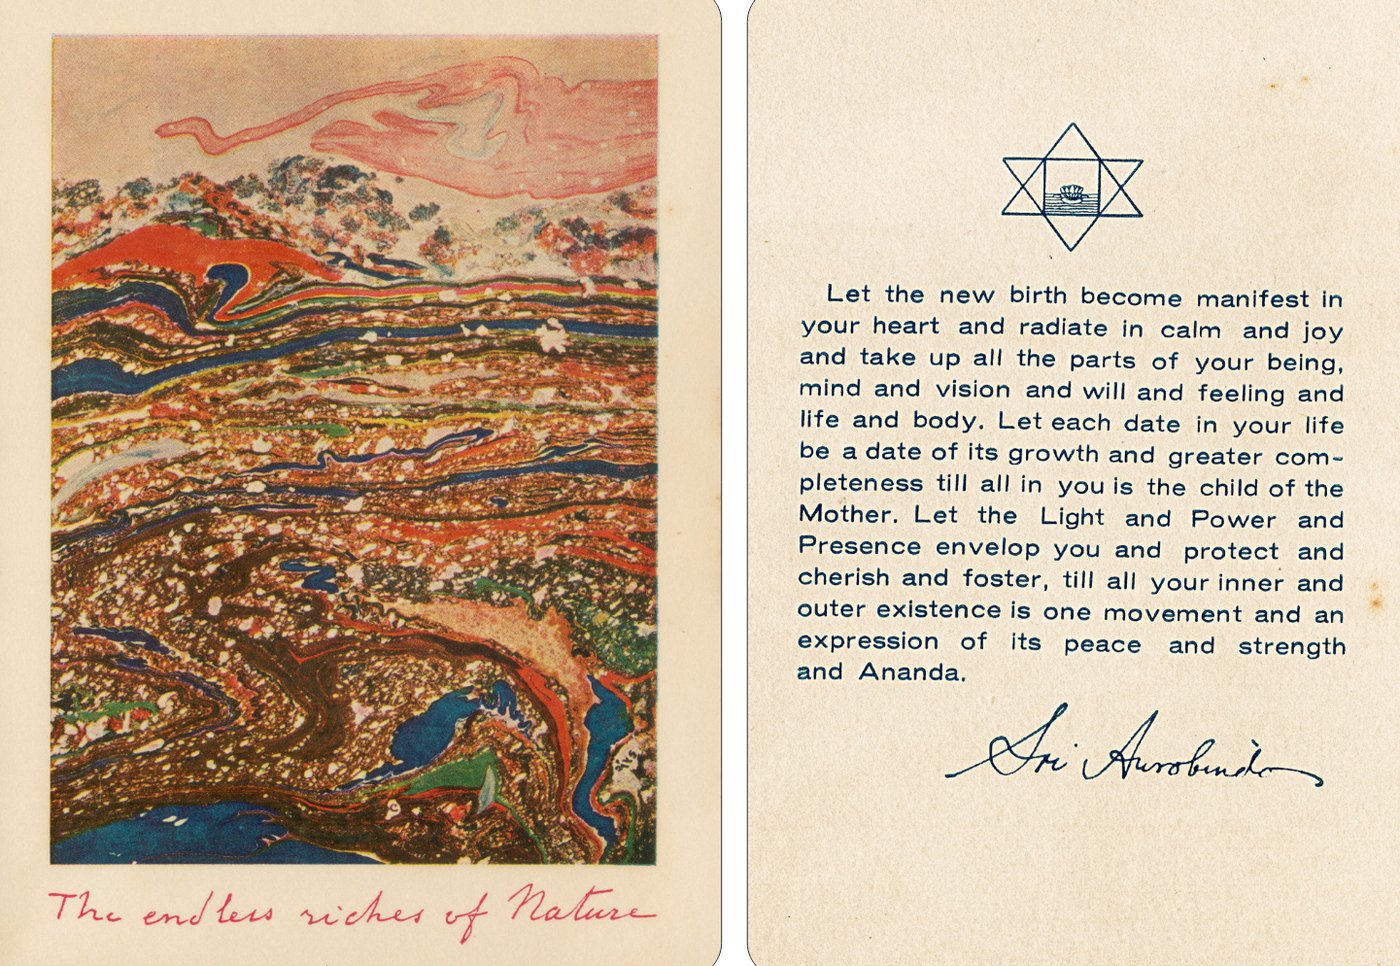 The endless riches of Nature
Let the new birth become manifest in
your heart and radiate in calm and joy
and take up all the parts of your being,
mind and vision and will and feeling and
life and body. Let each date in your life
be a date of its growth and greater com-
pleteness till all in you is the child of the
Mother. Let the Light and Power and
Presence envelop you and protect and
cherish and foster, till all your inner and
outer existence is one movement and an
expression of its peace and strength
and Ananda.
Sri Aurobindo